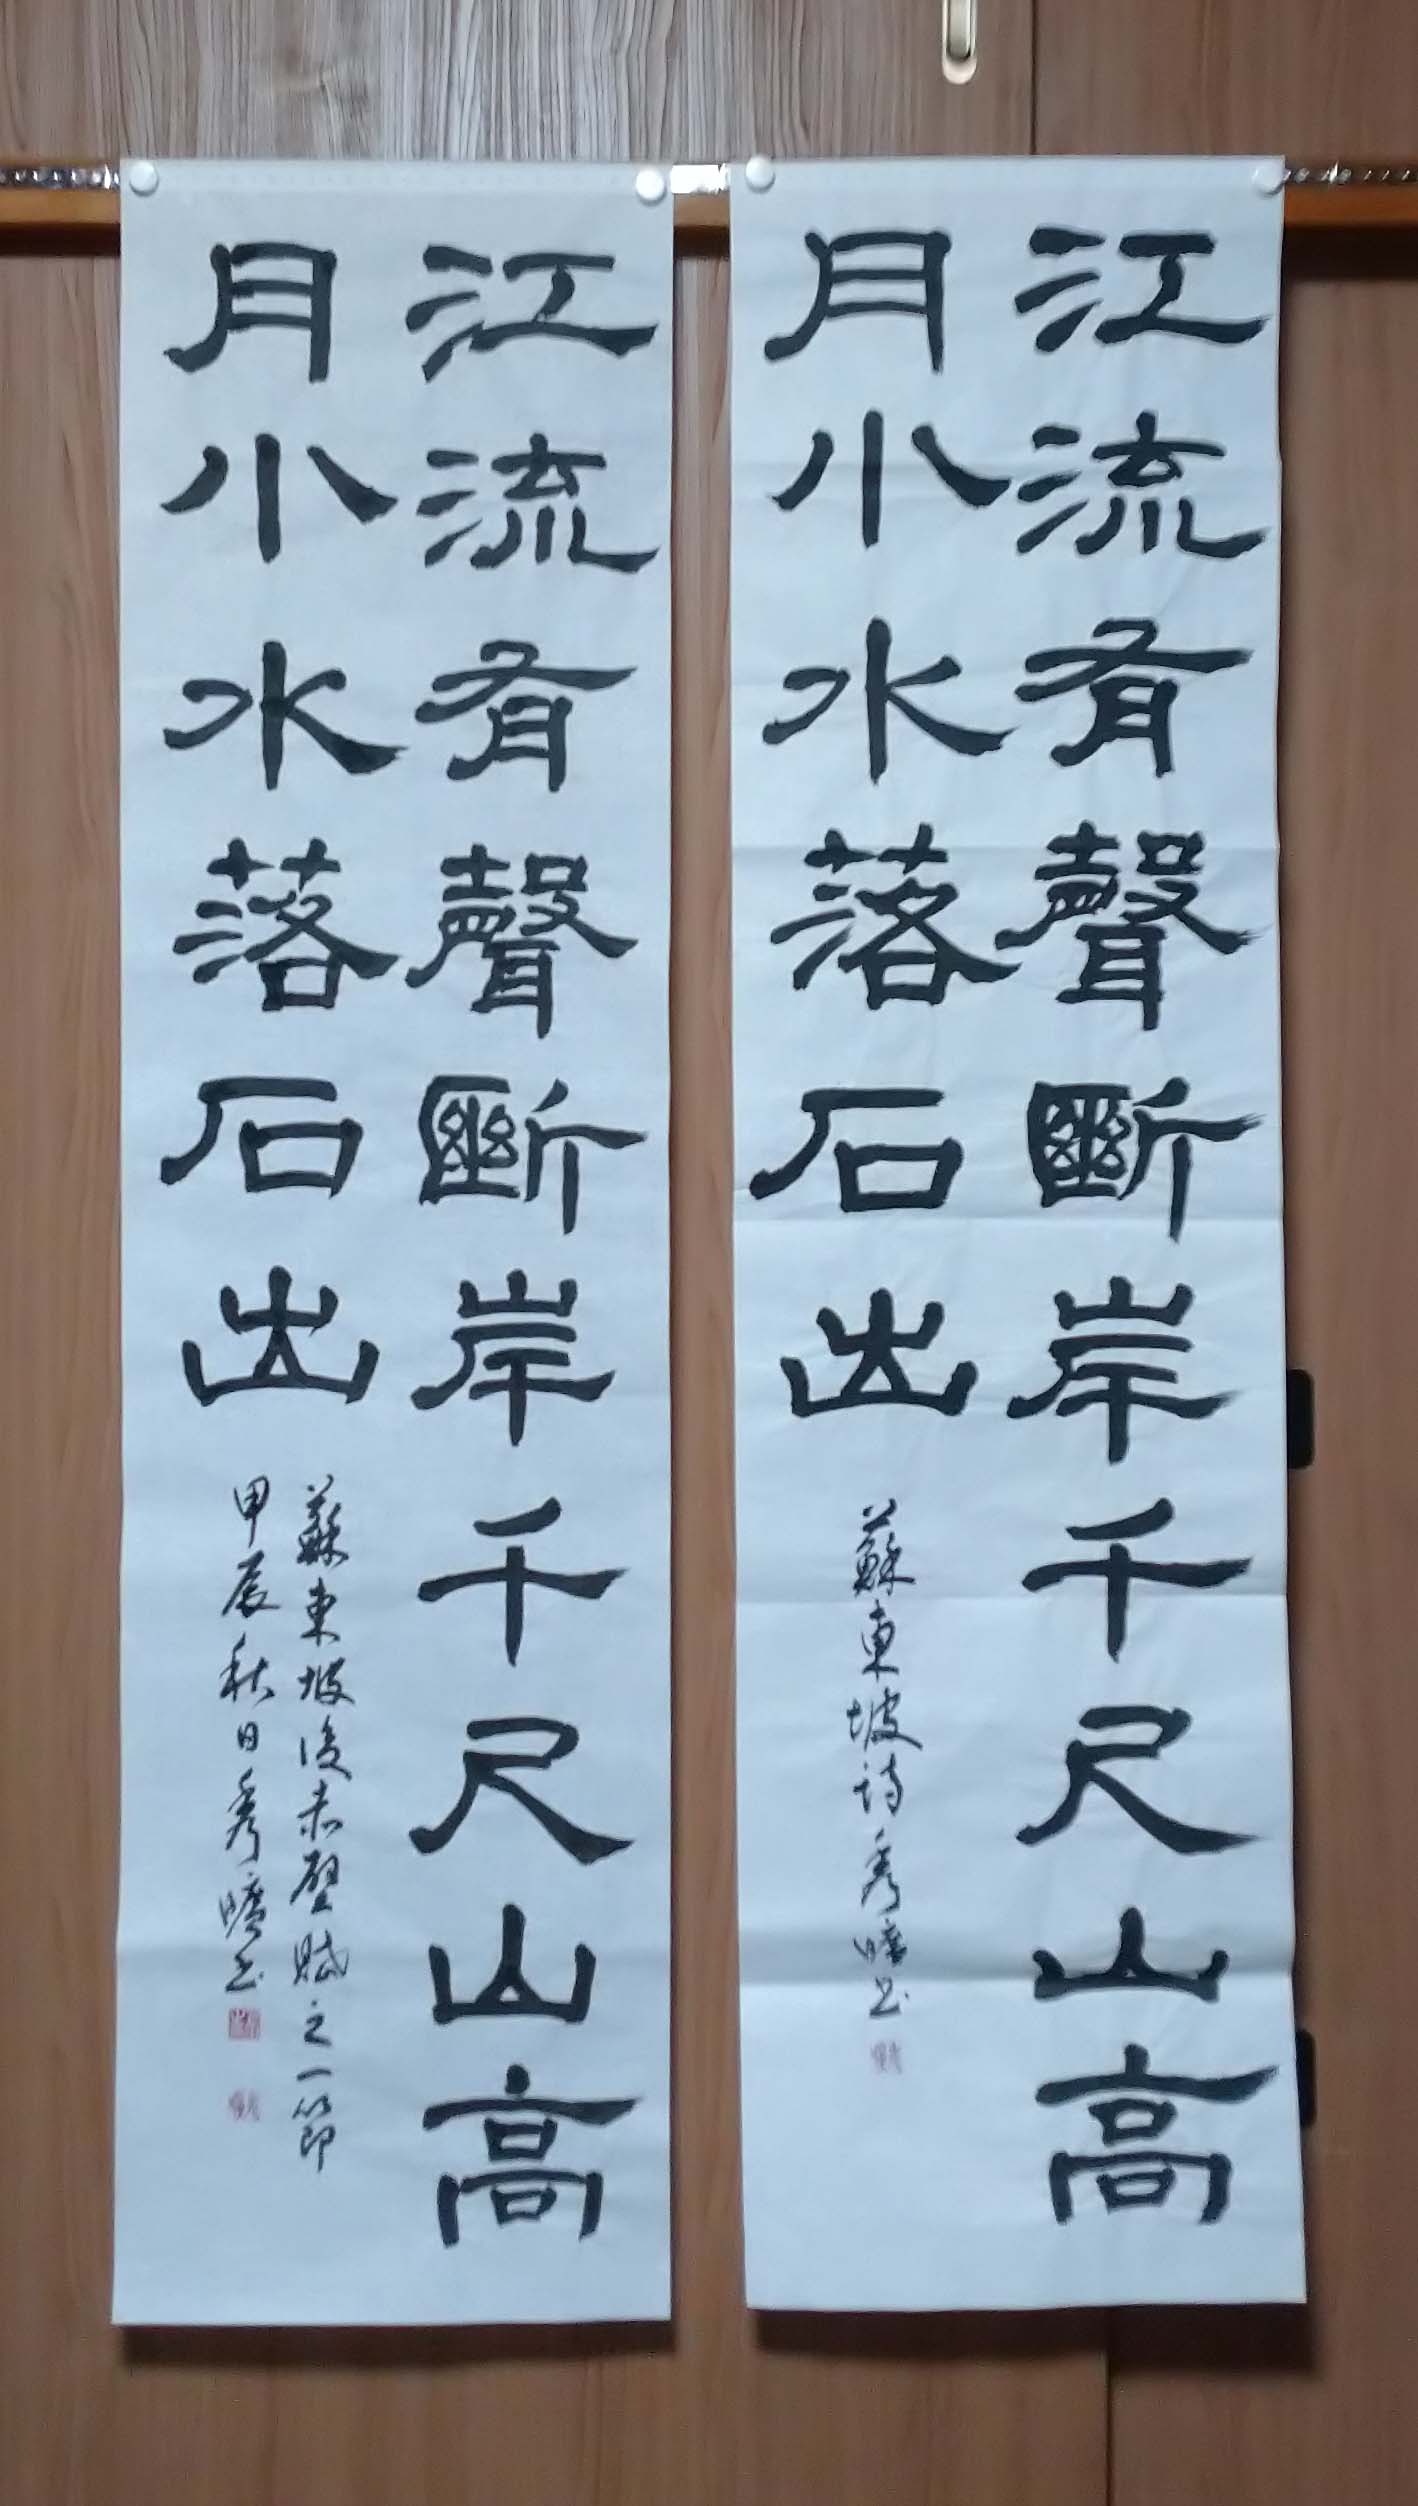 江流有聲斷岸千尺山高
月小水落石出
蘇東坡詩秀曠书
江流有聲斷岸千尺山高
月小水落石出
蘇東坡後赤壁賦之一節
甲辰秋日秀曠书